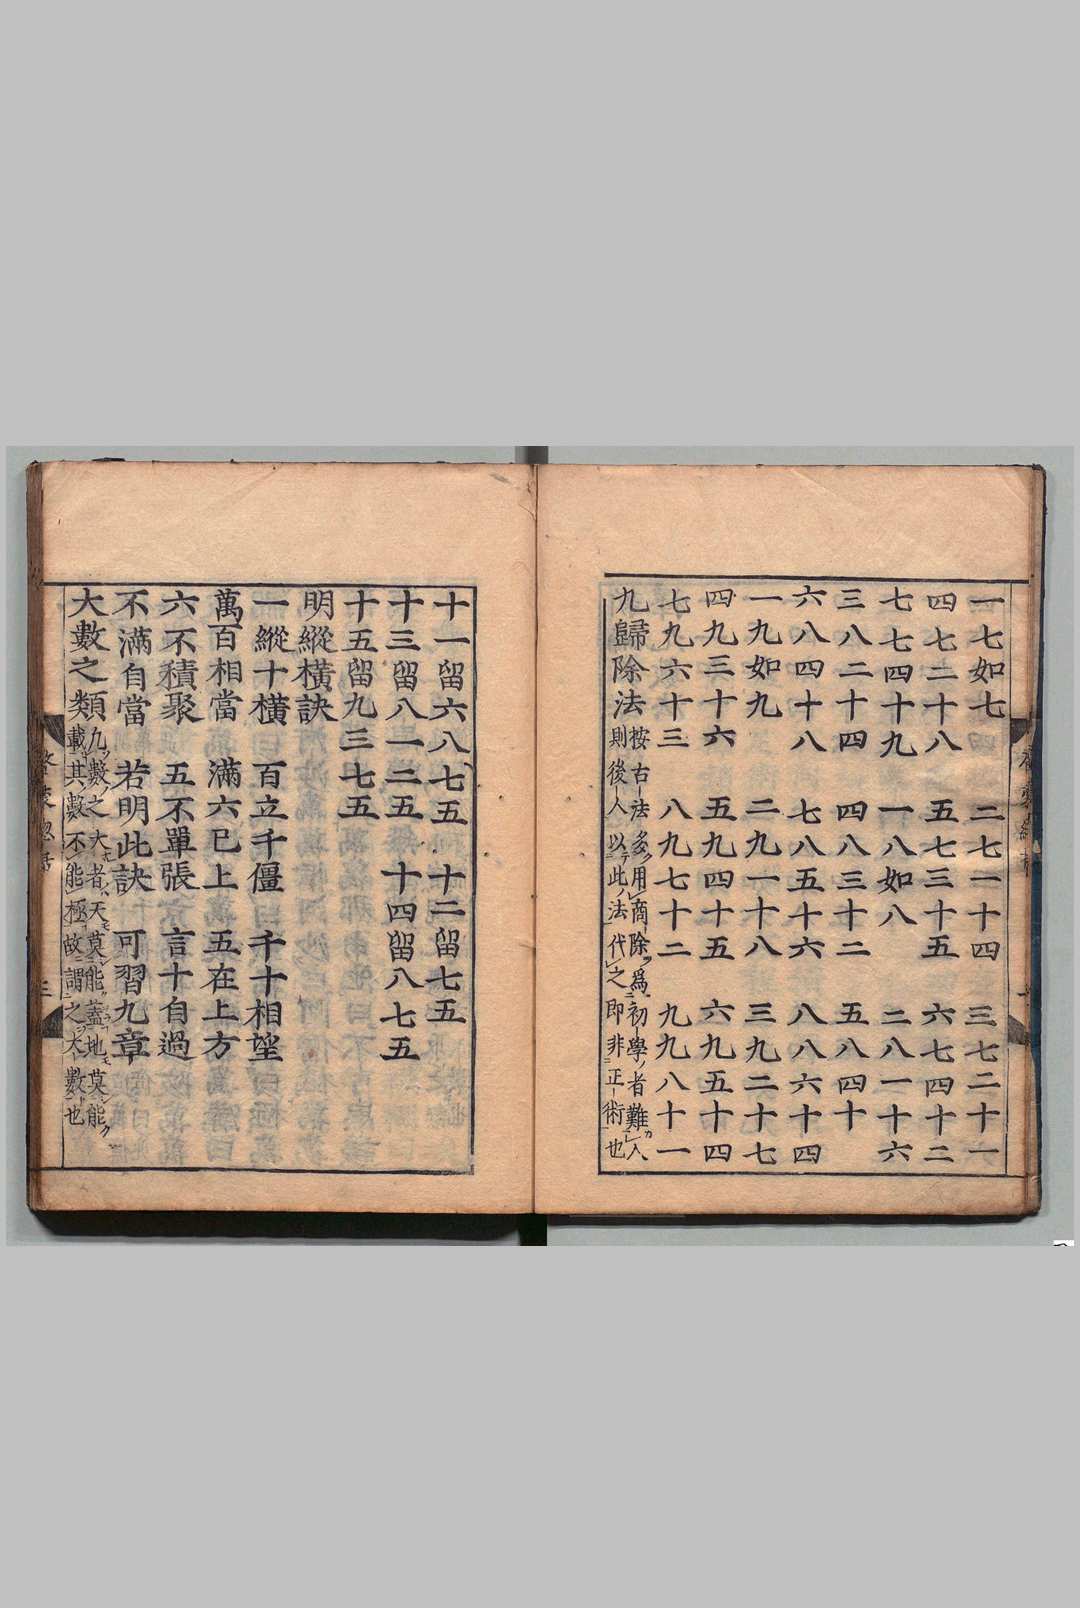 一七如七 二七一十四 三七二十一
四七二十八 五七三十五 六七四十二
七七四十九 一八如八 二八一十六
三八二十四 四八三十二 五八四十
六八四十八 七八五十六 八八六十四
一九如九 二九一十八 三九二十七
四九三十六 五九四十五 六九五十四
七九六十三 八九七十二 九九八十一
九歸除法
按古法多用商除爲初學者難入
則後人以此法代之即非正術也
十一留六八七五 十二留七五
十三留八一二五 十四留八七五
十五留九三七五
明縱橫訣
一縱十橫 百立千僵 千十相望
萬百相當 滿六已上 五在上方
六不積聚 五不單張 言十自過
不滿自當 若明此訣 可習九章
大數之類
九數之大者天莫能蓋地莫能
載其數不能極故謂之大數也
三